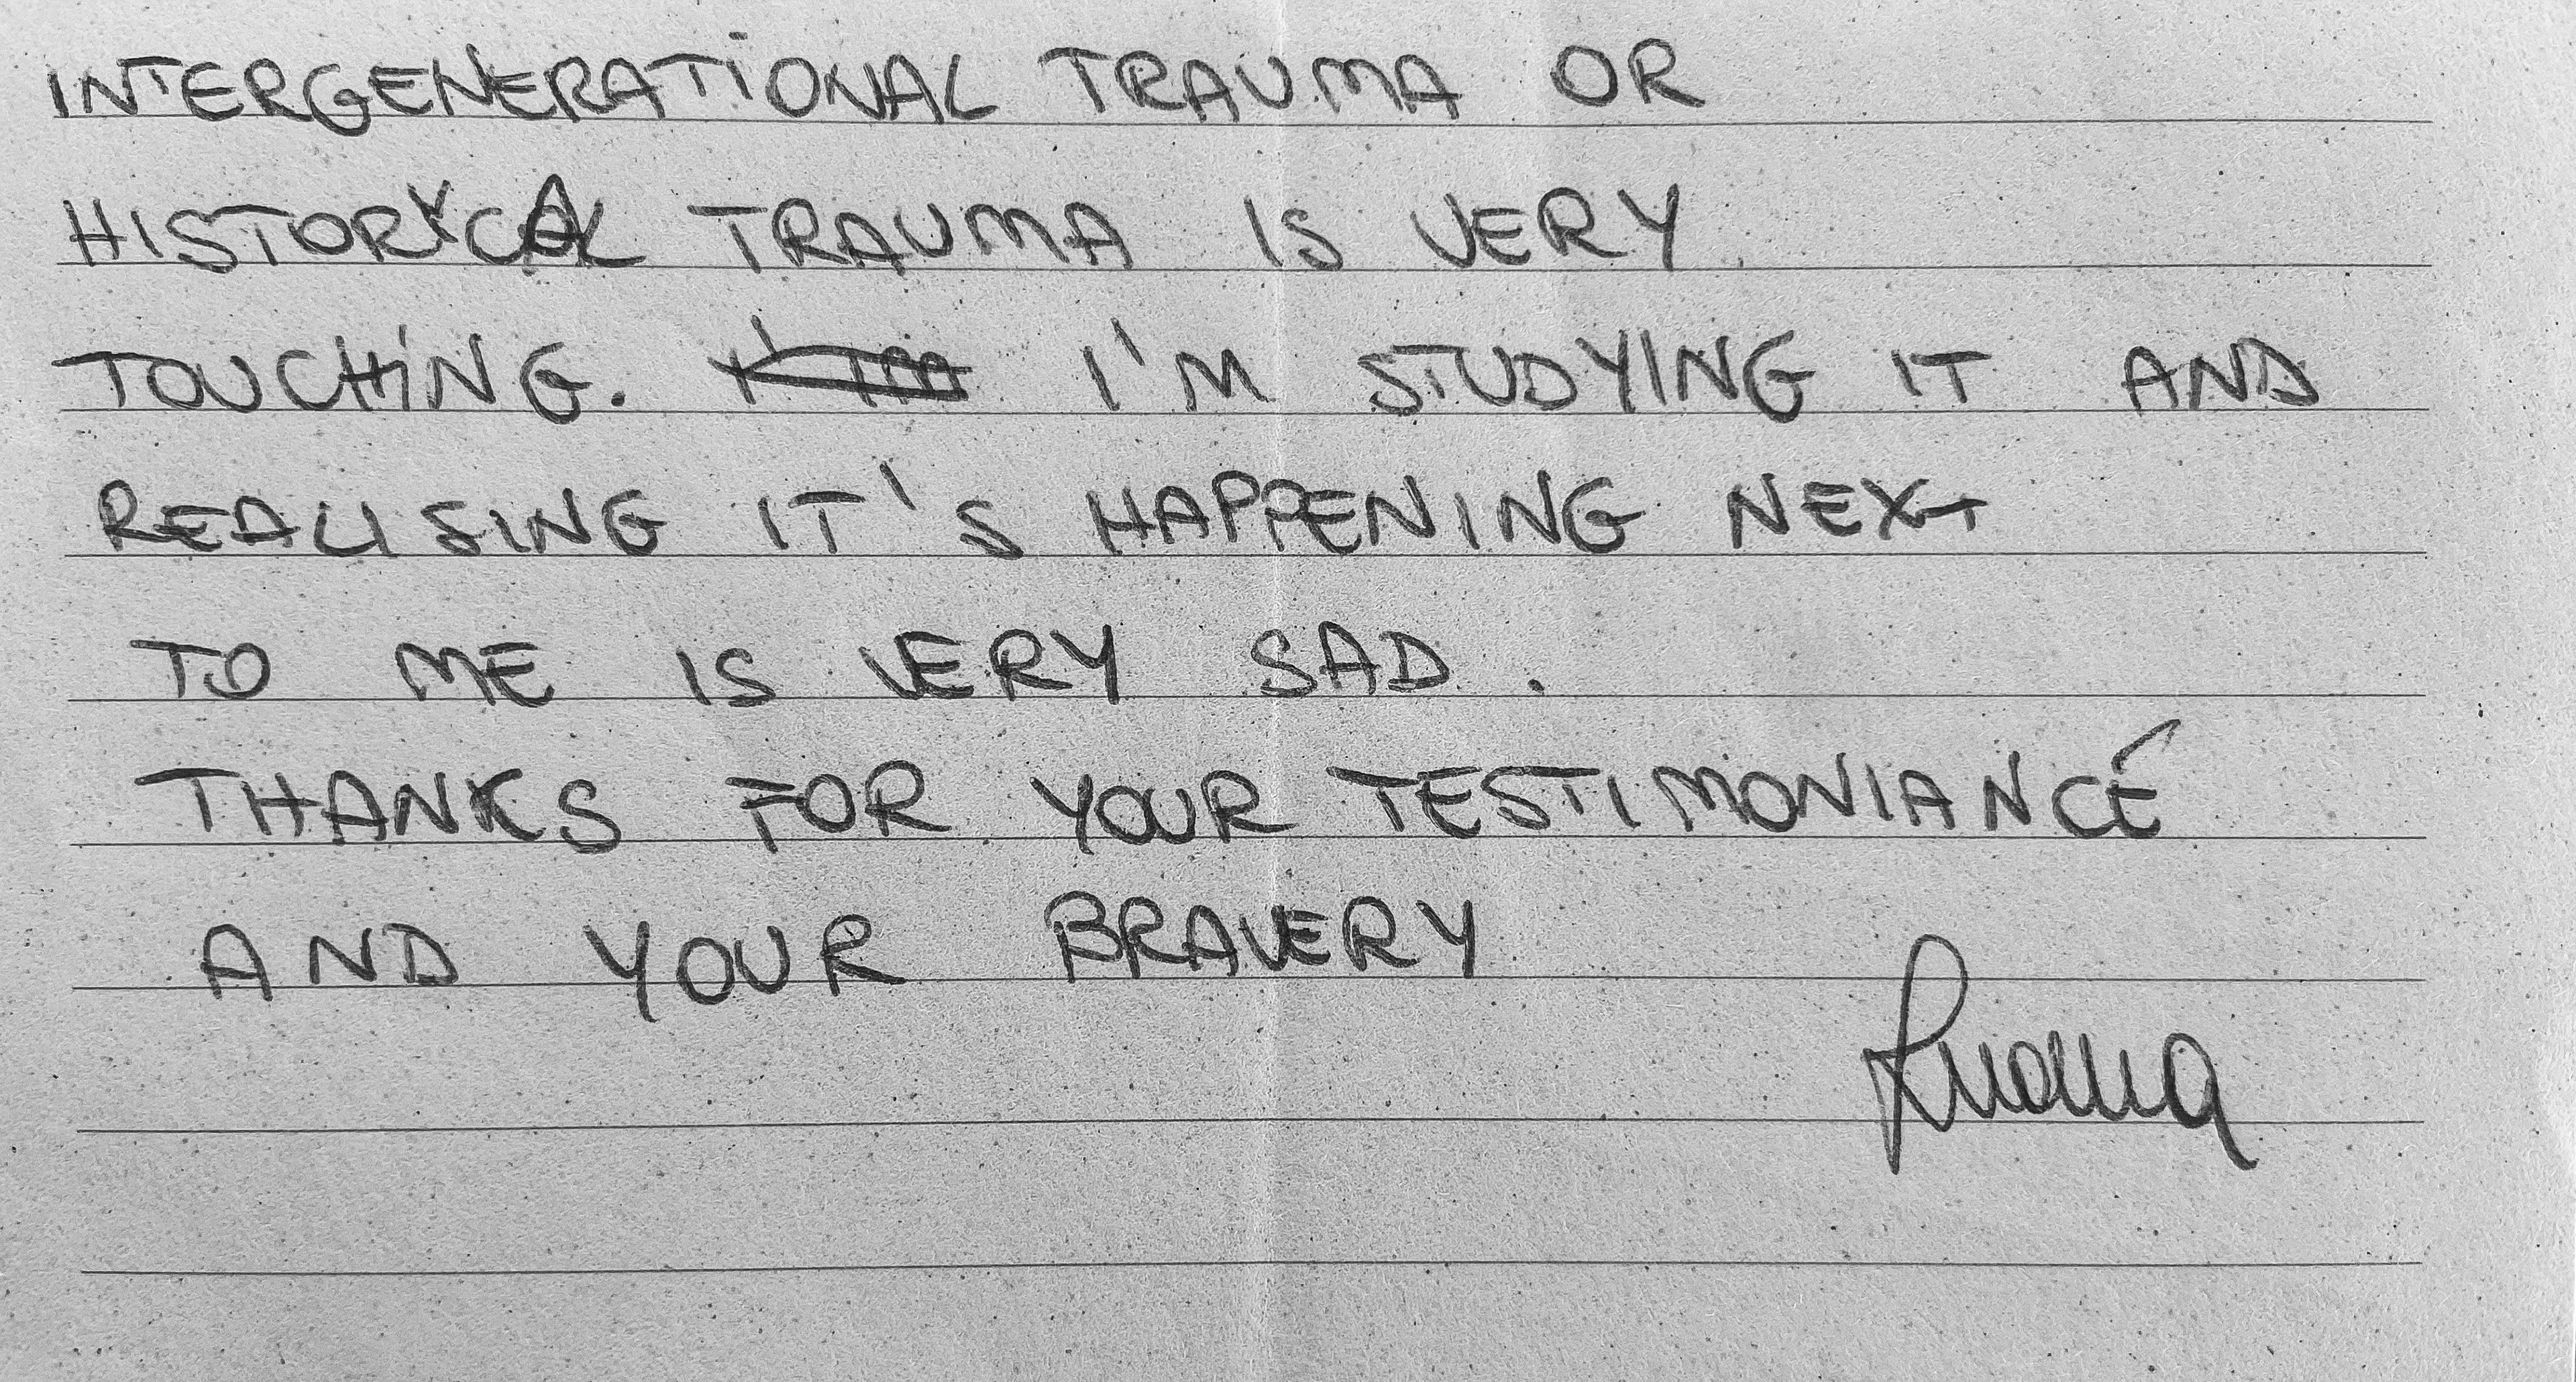 INTERGENERATIONAL TRAUMA OR
HISTORYCAL TRAUMA IS VERY
TOUCHING. I'M STUDYING IT AND
REALISING IT'S HAPPENING NEXT
TO ME IS VERY SAD.
THANKS FOR YOUR TESTIMONIANCÉ
AND YOUR BRAVERY